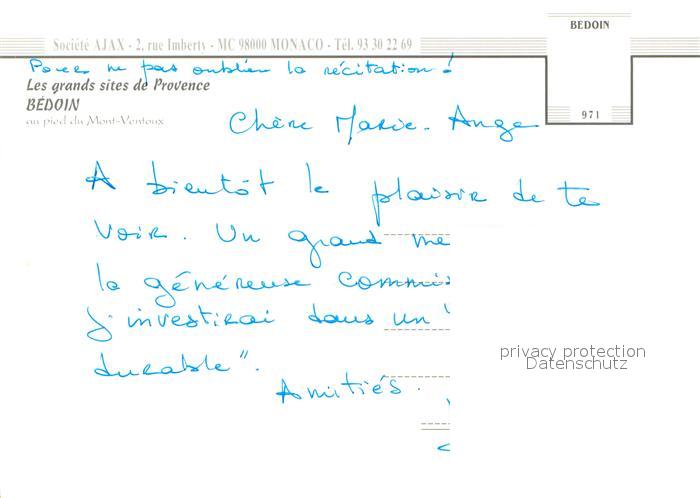 BEDOIN
Société AJAX - 2, rue Imberty - MC 98000 MONACO - Tél. 93 30 22 69
ne pas oublier la récitation !
Les grands sites de Provence
BÉDOIN
au pied du Mont-Ventoux
971
Chère Marie-Ange
A bientôt le plaisir de te
voir. Un grand me
la généreuse commis
j'investirai dans un "
durable".
Amitiés.
privacy protection
Datenschutz